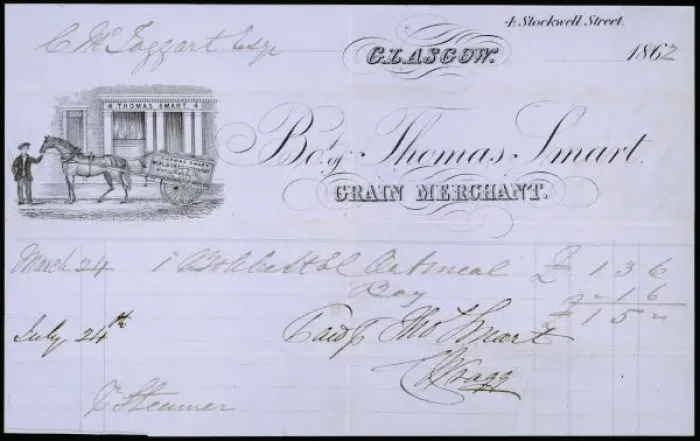 4 Stockwell Street.
C McTaggart Esqr
GLASGOW. 1862
4 THOMAS SMART. 4
THOMAS SMART
Bot. of Thomas Smart.
GRAIN MERCHANT.
March 24 1 Boll best Oatmeal £ 1 3 6
Bag " 1 6
£ 1 5 "
July 24th Paid Thos Smart
P Steamer